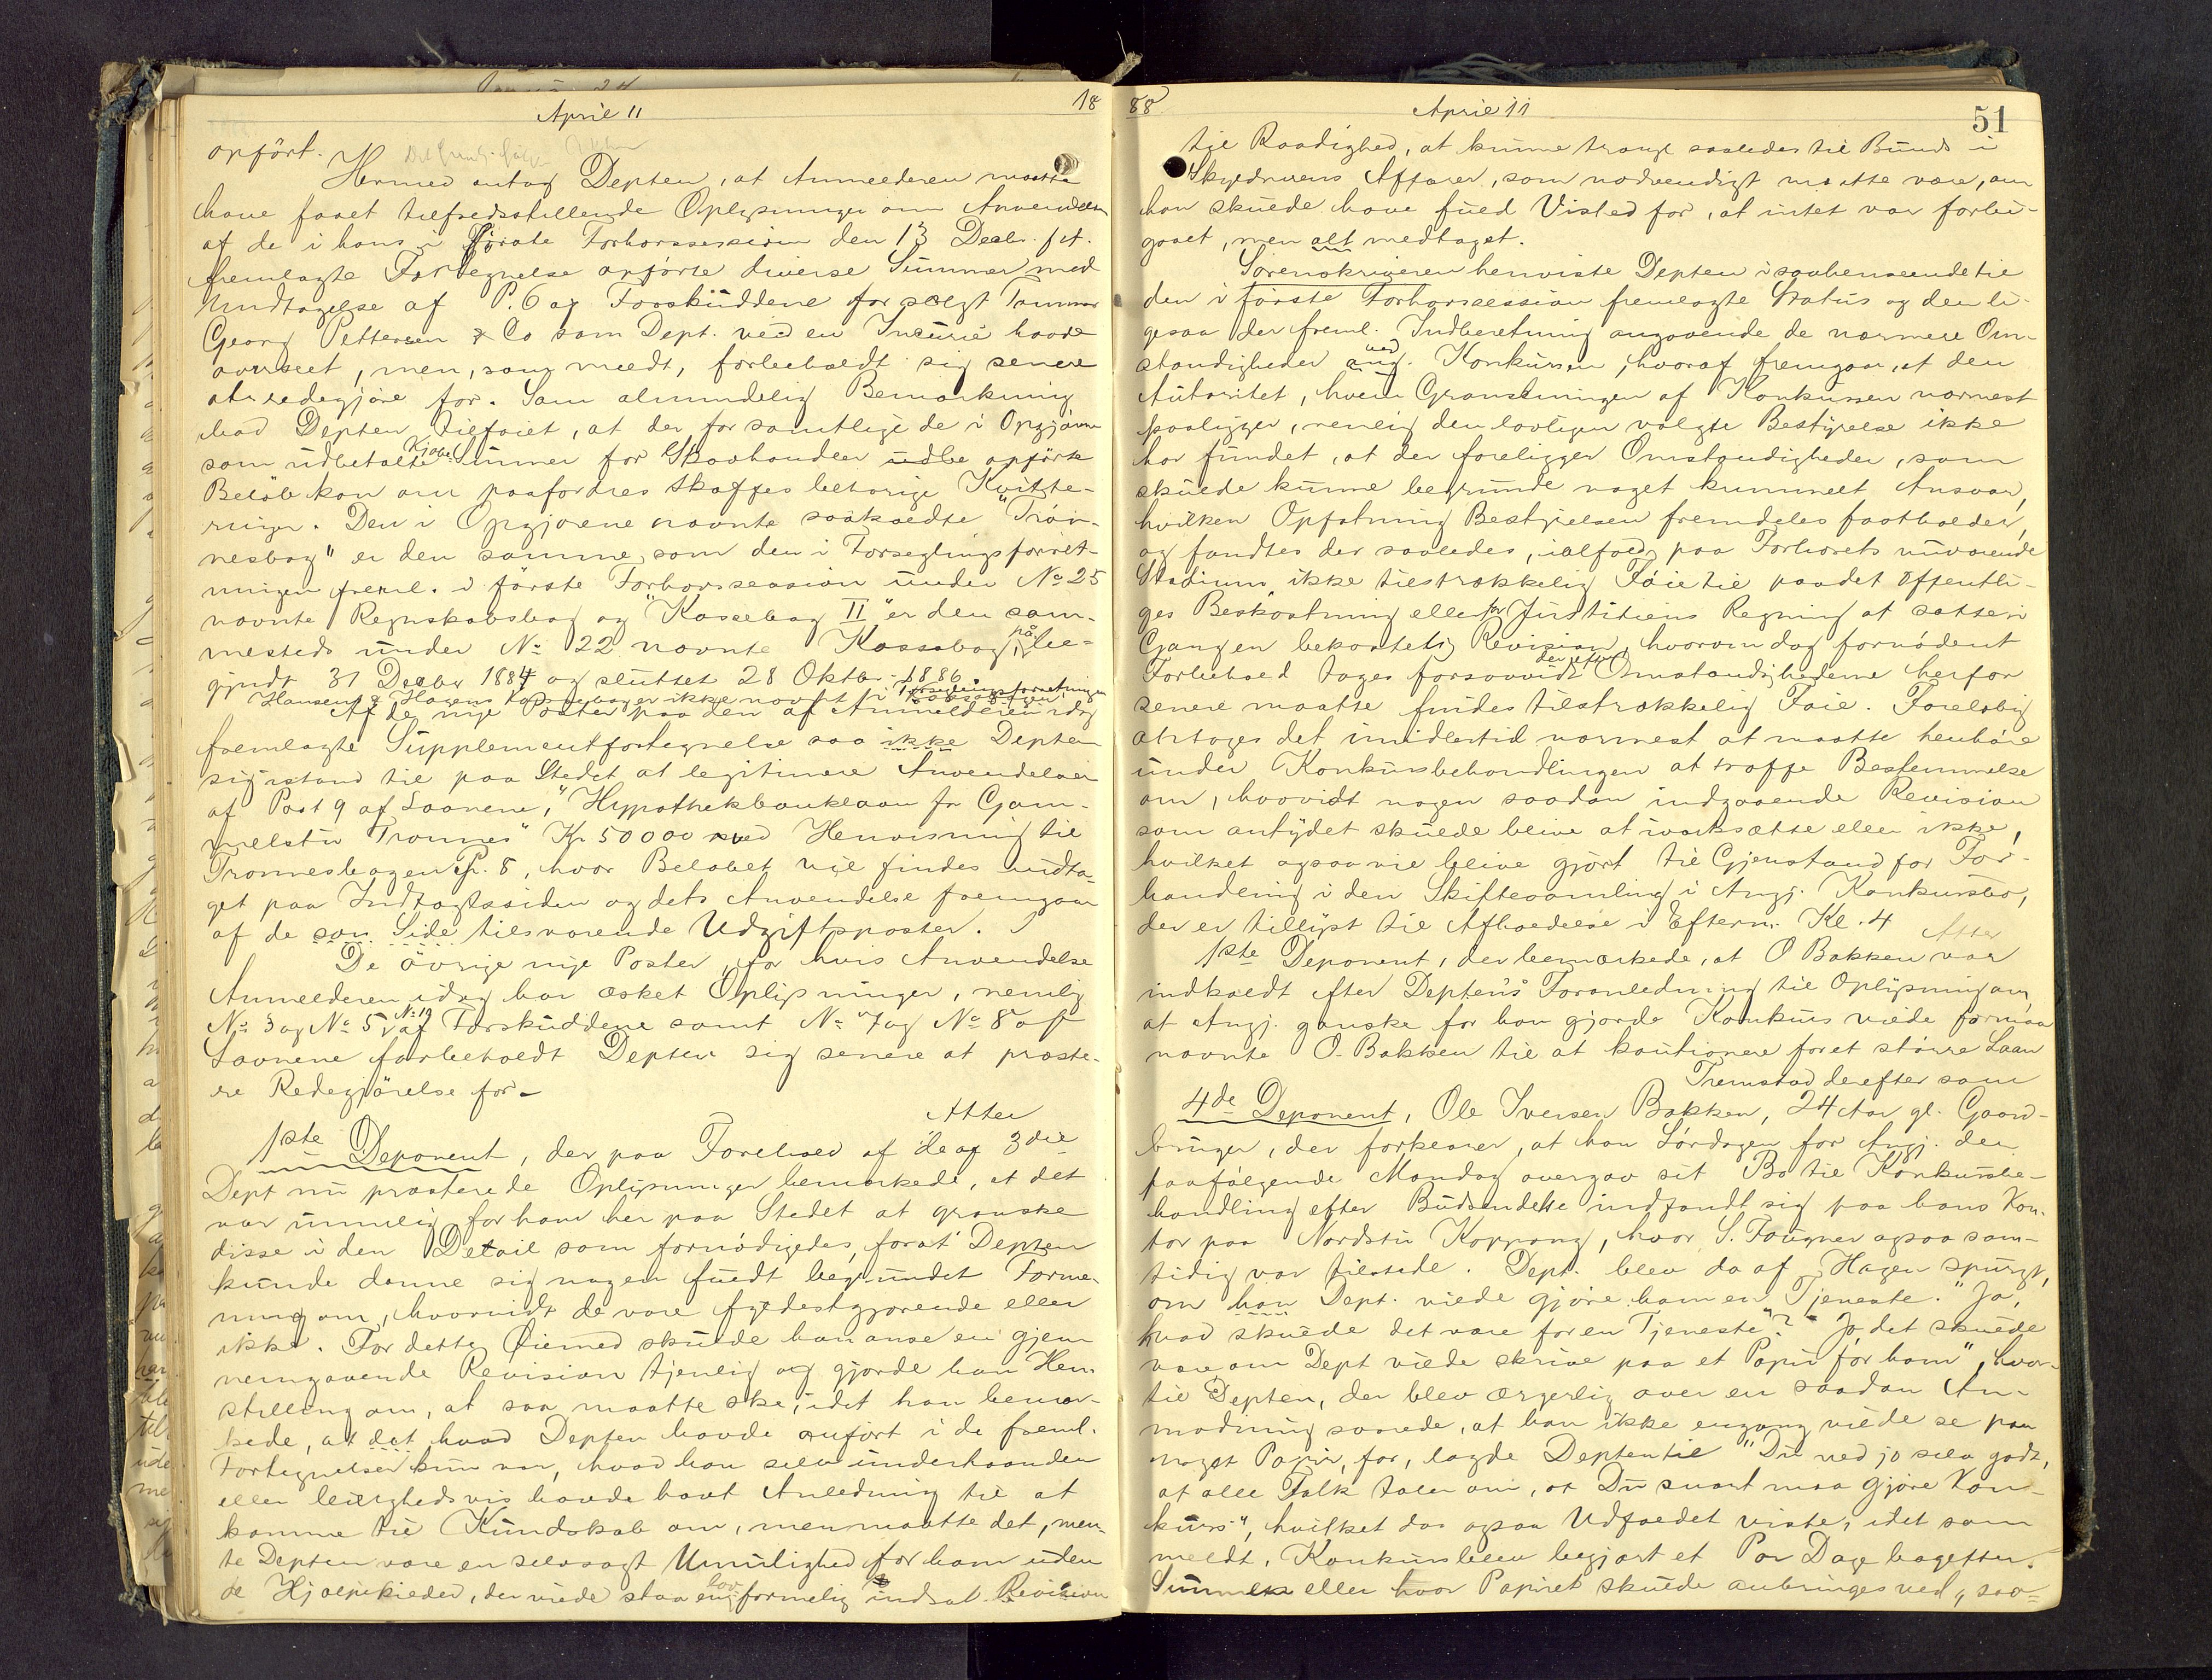 April 11
18
opfört.
Hermed antog Depten, at Anmelderen maatte
have faaet tilfredsstillende Oplysninger om Anvendelsen
af de i hans i förste Forhørssession den 13 Decbr. f.A.
fremlagte Fortegnelse opförte diverse Summer med
Undtagelse af P. 6 og Forskuddene for solgt Tømmer
Georg Pettersen & Co som Dept. ved en Incurie havde
overseet, men, som meldt, forbeholdt sig senere
at redegjøre for. Som almindelig Bemærkning
bad Depten tilføiet, at der for samtlige de i Opgjörne
som udbetalte Kjøbe Summer for Skovhandler opförte
Beløb kan om paafordres skaffes behørige Kvitte-
ringer. Den i Opgjørene nævnte saakaldte "Trön-
nesbog" er den samme, som den i Forseglingsforret-
ningen freml. i förste Forhørssession under No 25
nævnte Regnskabsbog og "Kassebog II" er den sam-
mesteds under No 22 nævnte Kassebog, på be-
gyndt 31 Decbr 1884 og sluttet 28 Oktbr. 1886.
Hansen & Hagens Kassebog er ikke nævnt i Forseglingsforretningen
Af de nye Poster paa den af Anmelderen idag
fremlagte Supplementfortegnelse saa ikke Depten
sig istand til paa Stedet at legitimere Anvendelsen
af Post 9 af Laanene, "Hypothekbanklaan for Gam-
melstu Trønnes" Kr 50000 med Henvisning til
Trønnesbogen P. 8, hvor Beløbet vil findes indta-
get paa Indtægtssiden og dets Anvendelse fremgaar
af de sam. Side tilsvarende Udgiftsposter.
De övrige nye Poster, for hvis Anvendelse
Anmelderen idag har æsket Oplysninger, nemlig
No 3 og No 5, No 19 af Forskuddene samt No 7 og No 8 af
Laanene forbeholdt Depten sig senere at præste-
re Redegjörelse for.
Atter
1ste Deponent, der paa Forehold af de af 3die
Dept nu præsterede Oplysninger bemærkede, at det
var umulig for ham her paa Stedet at granske
disse i den Detail som fornödigedes, forat Depten
kunde danne sig nogen fuldt begrundet Forme-
ning om, hvorvidt de vare fyldestgjørende eller
ikke. For dette Øiemed skulde han anse en gjen-
nemgaaende Revision tjenlig og gjorde han Hen-
stilling om, at saa maatte ske, idet han bemær-
kede, at det hvad Depten havde anført i de freml.
Fortegnelser kun var, hvad han selv underhaanden
eller leilighedsvis havde havt Anledning til at
komme til Kundskab om, men maatte det, men-
te Depten være en selvsagt Umulighed for ham uden
de Hjælpekilder, der vilde staa en lov formelig indsat Revision
88
April 11
51
til Raadighed, at kunne trænge saaledes til Bunds i
Skyldnerens Affærer, som nødvendigt maatte være, om
han skulde have fuld Visshed for, at intet var forbi-
gaaet, men alt medtaget.
Sorenskriveren henviste Depten i saahenseende til
den i förste Forhørssession fremlagte Status og den li-
gesaa der freml. Indberetning angaaende de nærmere Om-
stændigheder ved ang. Konkursen, hvoraf fremgaar, at den
Autoritet, hvem Granskningen af Konkursen nærmest
paaligger, nemlig den lovligen valgte Bestyrelse ikke
har fundet, at der foreligger Omstændigheder, som
skulde kunne begrunde noget kriminelt Ansvar,
hvilken Opfatning Bestyrelsen fremdeles fastholder,
og fandtes der saaledes, ialfald paa Forhørets nuværende
Stadium ikke tilstrækkelig Föie til paa det offentli-
ges Bekostning eller for Justitiens Regning at sætte i
Gangen bekostelig Revision, hvorom dog fornødent
Forbehold tages forsaavidt der efter Omstændighederne herfor
senere maatte findes tilstrækkelig Föie. Foreløbig
antages det imidlertid nærmest at maatte henhöre
under Konkursbehandlingen at træffe Bestemmelse
om, hvorvidt nogen saadan indgaaende Revision
som antydet skulde blive at iværksætte eller ikke,
hvilket ogsaa vil blive gjört til Gjenstand for For-
handling i den Skiftesamling i Angj. Konkursbo,
der er tillyst til Afholdelse i Efterm. Kl. 4
Atter
1ste Deponent, der bemærkede, at O Bakken var
indkaldt efter Depten's Foranledning til Oplysning om,
at Angj. ganske för han gjorde Konkurs vilde formaa
nævnte O. Bakken til at kautionere for et större Laan
Fremstod derefter som
4de Deponent, Ole Iversen Bakken, 24 Aar gl. Gaard-
bruger, der forklarer, at han Lördagen för Angj. den
paafølgende Mandag overgav sit Bo til Konkursbe-
handling efter Budsendelse indfandt sig paa hans Kon-
tor paa Nordstu Koppang, hvor S. Fougner ogsaa sam-
tidig var tilstede. Dept. blev da af Hagen spurgt,
om han Dept. vilde gjöre ham en Tjeneste. "Ja,
hvad skulde det være for en Tjeneste"? "Jo, det skulde
være om Dept vilde skrive paa et Papir for ham", hvor-
til Depten, der blev ærgerlig over en saadan An-
modning svarede, at han ikke engang vilde se paa
noget Papir, for, lagde Depten til "Du ved jo selv godt,
at alle Folk taler om, at Du snart maa gjöre Kon-
kurs", hvilket da ogsaa Udfaldet viste, idet som
meldt, Konkurs blev begjært et Par Dage bagefter.
Summen eller hvor Papiret skulde anbringes ved, saa-